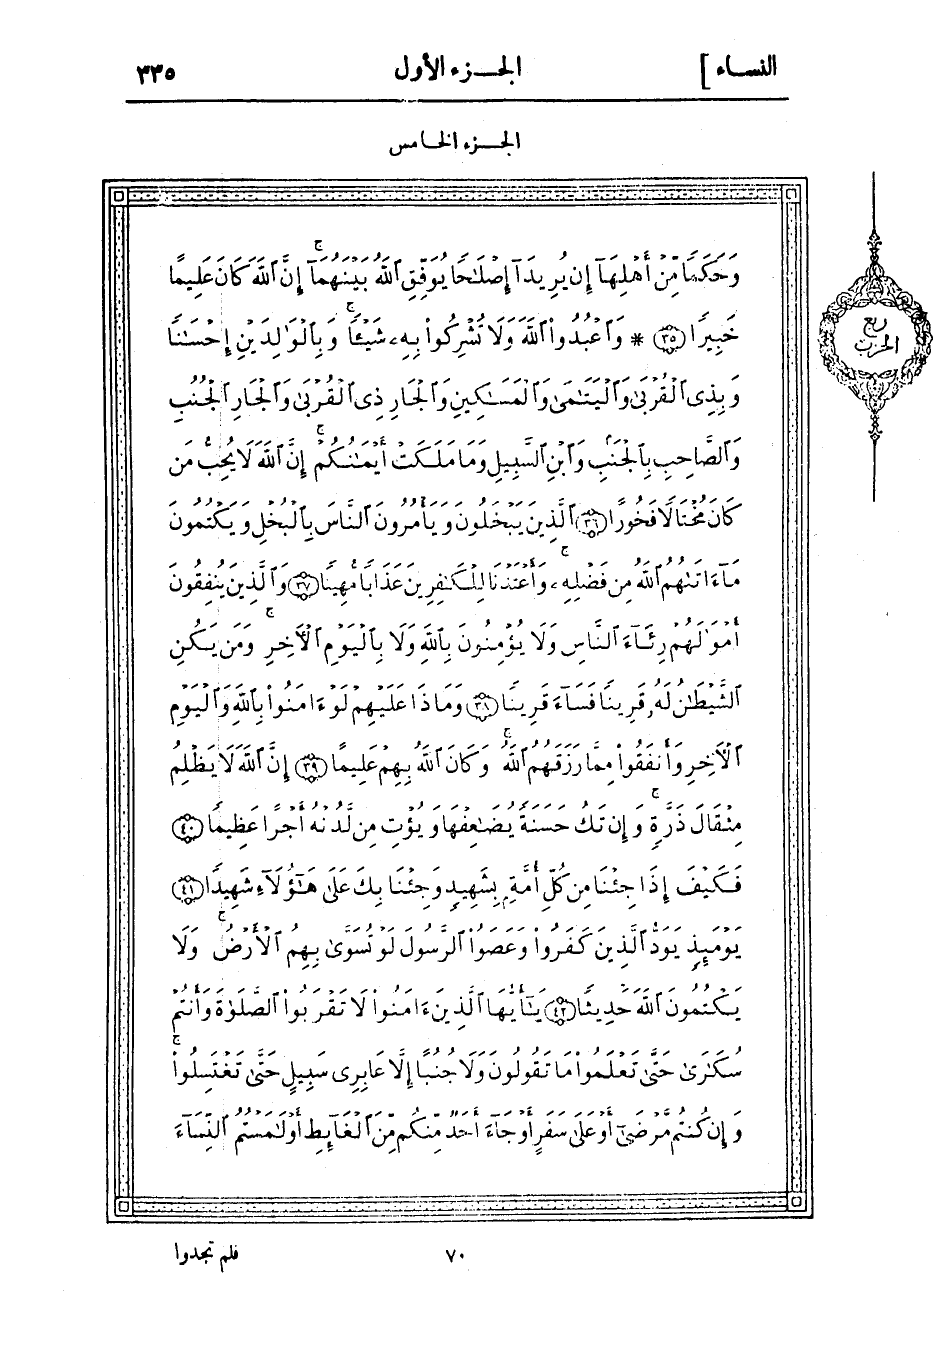 النساء ] الجزء الأول ٣٣٥
الجزء الخامس
وَحَكَمًا مِّنْ أَهْلِهَآ إِن يُرِيدَآ إِصْلَٰحًا يُوَفِّقِ ٱللَّهُ بَيْنَهُمَآ ۚ إِنَّ ٱللَّهَ كَانَ عَلِيمًا
خَبِيرًا ٣٥ * وَٱعْبُدُوا۟ ٱللَّهَ وَلَا تُشْرِكُوا۟ بِهِۦ شَيْـًٔا ۖ وَبِٱلْوَٰلِدَيْنِ إِحْسَٰنًا
وَبِذِى ٱلْقُرْبَىٰ وَٱلْيَتَٰمَىٰ وَٱلْمَسَٰكِينِ وَٱلْجَارِ ذِى ٱلْقُرْبَىٰ وَٱلْجَارِ ٱلْجُنُبِ
وَٱلصَّاحِبِ بِٱلْجَنۢبِ وَٱبْنِ ٱلسَّبِيلِ وَمَا مَلَكَتْ أَيْمَٰنُكُمْ ۚ إِنَّ ٱللَّهَ لَا يُحِبُّ مَن
كَانَ مُخْتَالًا فَخُورًا ٣٦ ٱلَّذِينَ يَبْخَلُونَ وَيَأْمُرُونَ ٱلنَّاسَ بِٱلْبُخْلِ وَيَكْتُمُونَ
مَآ ءَاتَىٰهُمُ ٱللَّهُ مِن فَضْلِهِۦ ۚ وَأَعْتَدْنَا لِلْكَٰفِرِينَ عَذَابًا مُّهِينًا ٣٧ وَٱلَّذِينَ يُنفِقُونَ
أَمْوَٰلَهُمْ رِئَآءَ ٱلنَّاسِ وَلَا يُؤْمِنُونَ بِٱللَّهِ وَلَا بِٱلْيَوْمِ ٱلْءَاخِرِ ۗ وَمَن يَكُنِ
ٱلشَّيْطَٰنُ لَهُۥ قَرِينًا فَسَآءَ قَرِينًا ٣٨ وَمَاذَا عَلَيْهِمْ لَوْ ءَامَنُوا۟ بِٱللَّهِ وَٱلْيَوْمِ
ٱلْءَاخِرِ وَأَنفَقُوا۟ مِمَّا رَزَقَهُمُ ٱللَّهُ ۚ وَكَانَ ٱللَّهُ بِهِمْ عَلِيمًا ٣٩ إِنَّ ٱللَّهَ لَا يَظْلِمُ
مِثْقَالَ ذَرَّةٍ ۖ وَإِن تَكُ حَسَنَةً يُضَٰعِفْهَا وَيُؤْتِ مِن لَّدُنْهُ أَجْرًا عَظِيمًا ٤٠
فَكَيْفَ إِذَا جِئْنَا مِن كُلِّ أُمَّةٍۭ بِشَهِيدٍ وَجِئْنَا بِكَ عَلَىٰ هَٰٓؤُلَآءِ شَهِيدًا ٤١
يَوْمَئِذٍ يَوَدُّ ٱلَّذِينَ كَفَرُوا۟ وَعَصَوُا۟ ٱلرَّسُولَ لَوْ تُسَوَّىٰ بِهِمُ ٱلْأَرْضُ ۖ وَلَا
يَكْتُمُونَ ٱللَّهَ حَدِيثًا ٤٢ يَٰٓأَيُّهَا ٱلَّذِينَ ءَامَنُوا۟ لَا تَقْرَبُوا۟ ٱلصَّلَوٰةَ وَأَنتُمْ
سُكَٰرَىٰ حَتَّىٰ تَعْلَمُوا۟ مَا تَقُولُونَ وَلَا جُنُبًا إِلَّا عَابِرِى سَبِيلٍ حَتَّىٰ تَغْتَسِلُوا۟ ۚ
وَإِن كُنتُم مَّرْضَىٰٓ أَوْ عَلَىٰ سَفَرٍ أَوْ جَآءَ أَحَدٌ مِّنكُم مِّنَ ٱلْغَآئِطِ أَوْ لَٰمَسْتُمُ ٱلنِّسَآءَ
ربع
الحزب
٧٠ فلم تجدوا